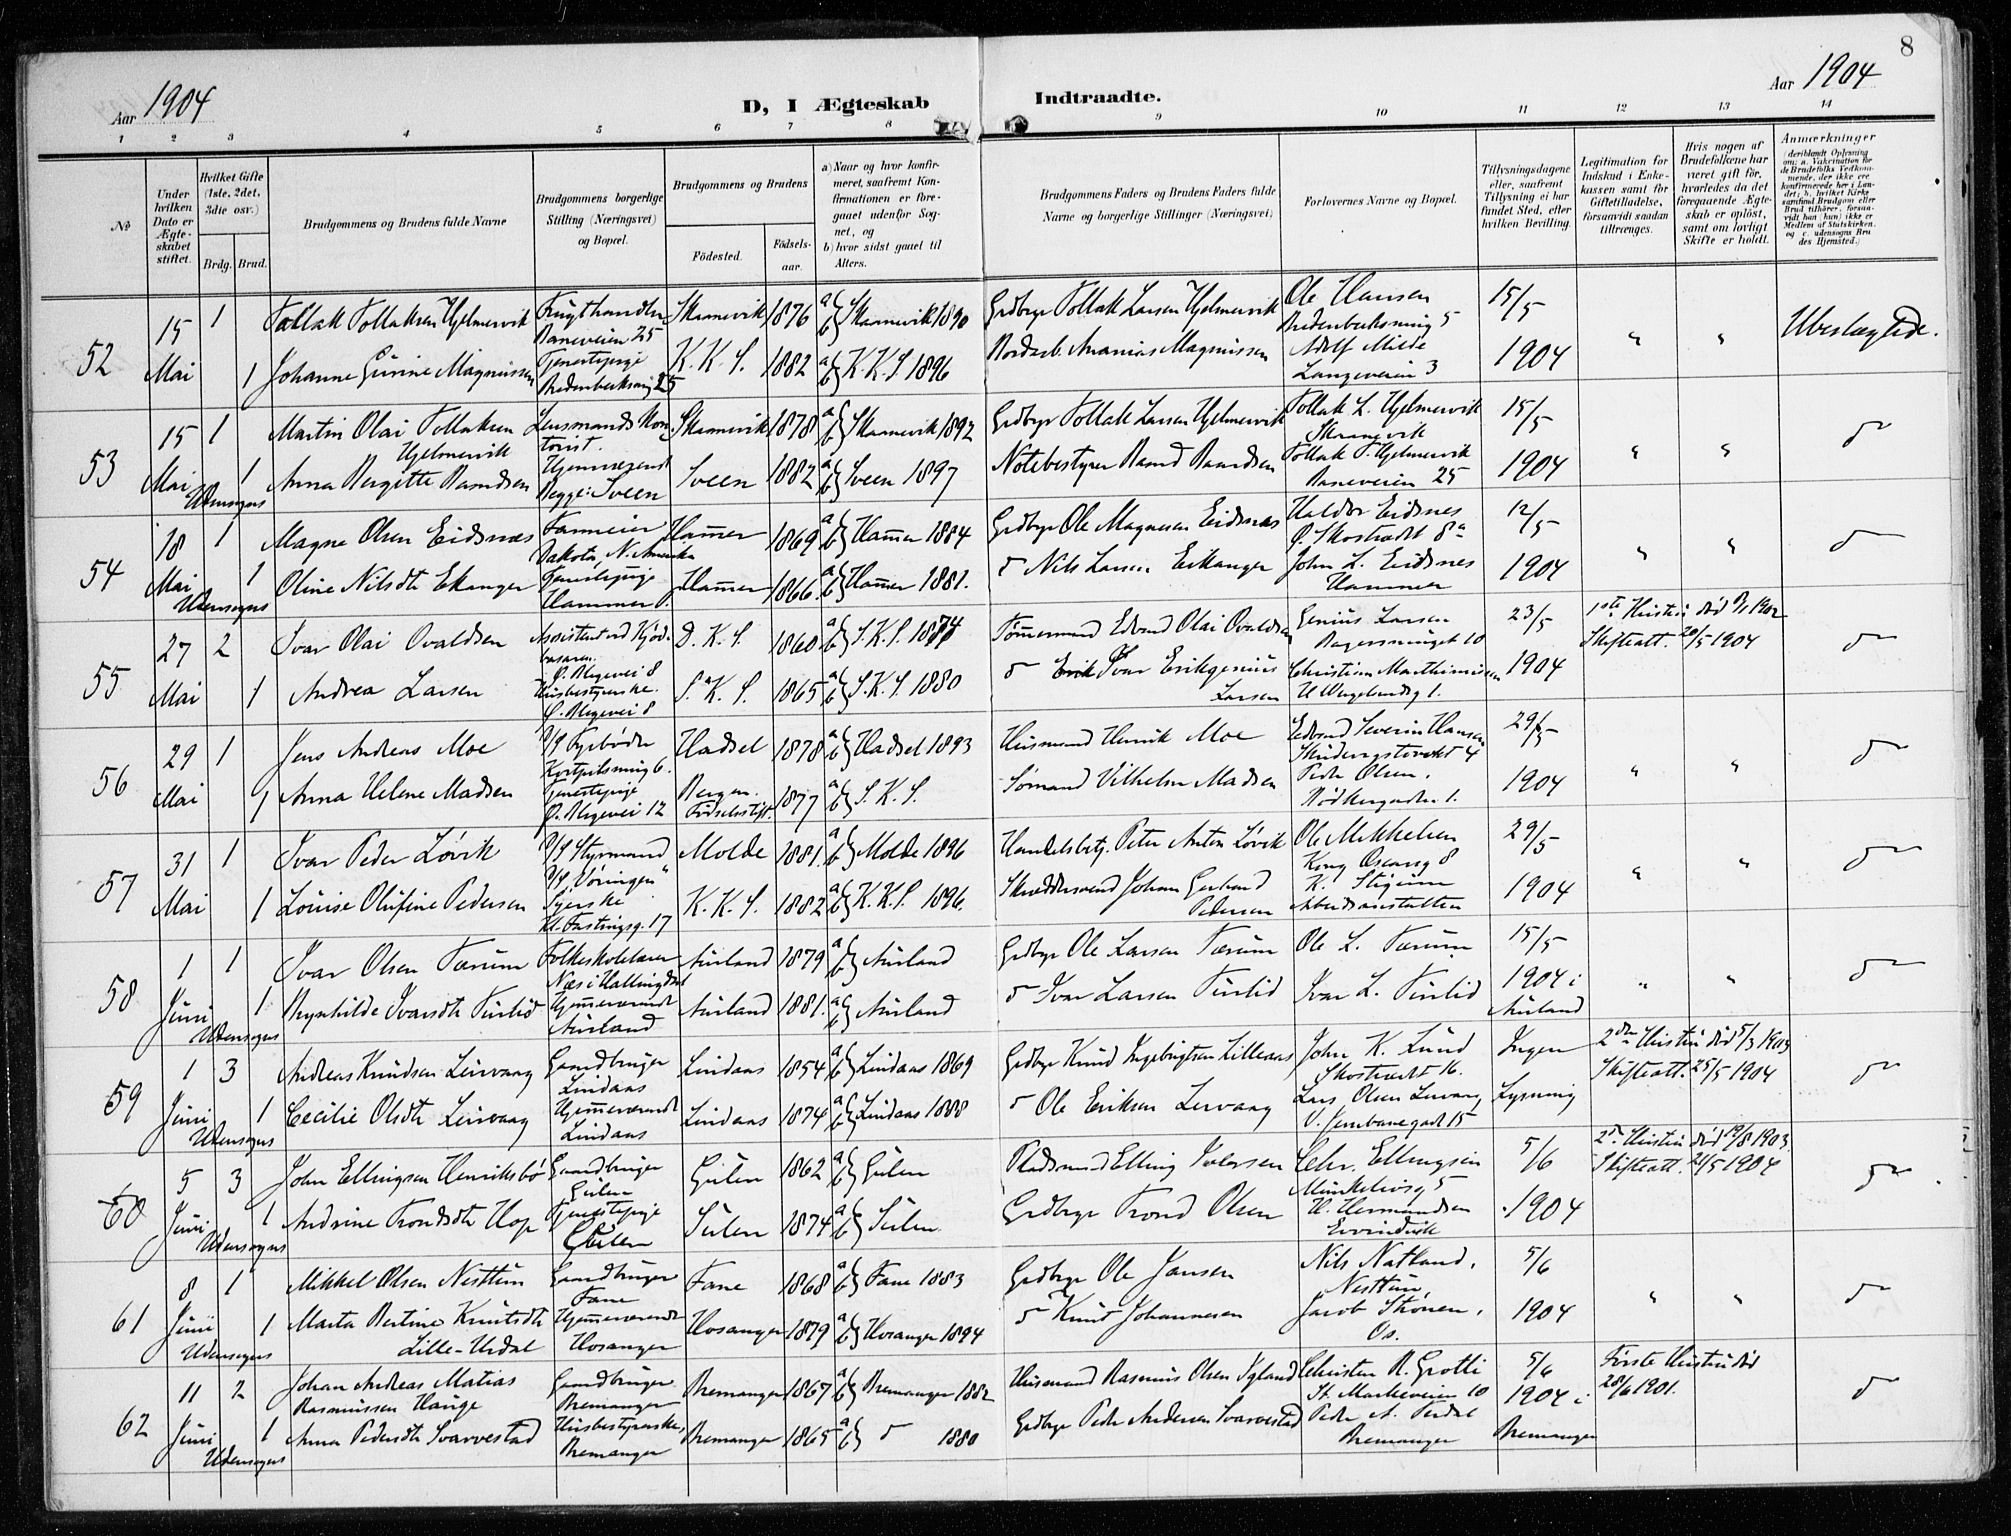 8
Aar 1904
D, I Ægteskab Indtraadte.
Aar 1904
1 2 3 4 5 6 7 8 9 10 11 12 13 14
No
Under hvilken Dato er Ægteskabet stiftet.
Hvilket Gifte (1ste, 2det, 3die osv.)
Brdg. Brud.
Brudgommens og Brudens fulde Navne
Brudgommens borgerlige Stilling (Næringsvei) og Bopæl.
Brudgommens og Brudens
Födested. Födselsaar.
a) Naar og hvor konfirmeret, saafremt Konfirmationen er foregaaet udenfor Sognet, og
b) hvor sidst gaaet til Alters.
Brudgommens Faders og Brudens Faders fulde Navne og borgerlige Stillinger (Næringsvei)
Forlovernes Navne og Bopæl.
Tillysningsdagene eller, saafremt Tillysning ei har fundet Sted, efter hvilken Bevilling.
Legitimation for Indskud i Enkekassen samt for Giftetilladelse, forsaavidt saadan tiltrænges.
Hvis nogen af Brudefolkene har været gift för, hvorledes da det foregaaende Ægteskab er oplöst, samt om lovligt Skifte er holdt.
Anmærkninger
52
15 1 Tollak Tollaksen Hjelmervik Frugthandler Skaanevik 1876 a b Skaanevik 1890 Grdbrgr Tollak Larsen Hjelmervik Ole Hansen 15/5 " " Ubeslægtede.
Baneveien 25 5
Mai 1 Johanne Gurine Magnussen Tjenestepige K. K. S. 1882 a b K. K. S. 1896 Ananias Magnussen Adolf Milde 1904
25 Langeveien 3
53
15 1 Martin Olai Tollaksen Lensmandskon- Skaanevik 1878 a b Skaanevik 1892 Grdbrgr Tollak Larsen Hjelmervik Tollak L. Hjelmervik 15/5 " " do
Hjelmervik torist. Skaanevik
Mai 1 Anna Bergitte Baardsen Hjemmeværende Sveen 1882 a b Sveen 1897 Notebestyrer Baard Baardsen Tollak T. Hjelmervik 1904
Udensogns Begge: Sveen Baneveien 25
54
18 1 Magne Olsen Eidsnæs Farmeier Hammer 1869 a b Hammer 1884 Grdbrgr Ole Magnesen Eidsnæs Haldor Eidsnes 12/5 " " do
Dakota, N. Amerika Ø. Skostrædet 8a
Mai 1 Oline Nilsdtr Eikanger Tjenestepige Hammer 1866 a b Hammer 1881. do Nils Larsen Eikanger John L. Eidsnes 1904
Udensogns Hammer Hammer
55
27 2 Ivar Olai Ovaldsen Assistent ved Kjød- D. K. S. 1860 a b S. K. S. 1874 Tømmermand Edvard Olai Ovaldsen Genius Larsen 23/5 1ste Hustru død 1902 do
basaren. Ø. Blegevei 8 10 Skifteatt. 20/5 1904
Mai 1 Andrea Larsen Husbestyrerske. S. K. S. 1865 a b S. K. S. 1880 do Ivar Erikgenius Christian Marthinussen 1904
Ø. Blegevei 8 Larsen H. Wergelandsg 1.
56
29 1 Jens Andreas Moe Fyrbøder Hadsel 1878 a b Hadsel 1893 Husmand Henrik Moe Edvard Severin Hansen 29/5 " " do
6. 4
Mai 1 Anna Helene Madsen Tjenestepige Bergen. 1877 a b S. K. S. Sømand Vilhelm Madsen Peder Olsen. 1904
Ø. Blegevei 12 Fødselsstift. 1.
57
31 1 Ivar Peder Løvik Styrmand Molde 1881. a b Molde 1896 Handelsbetj. Peter Anton Løvik Ole Mikkelsen 29/5 " " do
"Vøringen" Kong Oscarsg 8
Mai 1 Louise Olufine Pedersen Syerske K. K. S. 1882 a b K. K. S. 1896. Skræddersvend Johan Gerhard K. Stigum 1904
Kl. Fastingsg. 17 Pedersen Arbeidsanstalten
58
1 1 Ivar Olsen Tærum Folkeskolelærer Aurland 1879 a b Aurland Grdbrgr Ole Larsen Tærum Ole L. Tærum 15/5 " " do
Næs i Hallingdal
Juni 1 Brynhilde Ivarsdtr Turlid Hjemmeværende Aurland 1881. a b Aurland do Ivar Larsen Turlid Ivar L. Turlid 1904 i
Udensogns Aurland Aurland
59
1 3 Andreas Knudsen Leirvaag Gaardbruger Lindaas 1854 a b Lindaas 1869 Grdbrgr Knud Ingebrigtsen Lilleaas John K. Lund Ingen 2den Hustru død 5/3 1903 do
Lindaas Skostrædet 16. Skifteatt. 25/5 1904
Juni 1 Cecilie Olsdtr Leirvaag Hjemmeværende Lindaas 1874 a b Lindaas 1888 do Ole Eriksen Lervaag Lars Olsen Lervaag Lysning
Udensogns Lindaas 15
60
5 3 John Ellingsen Henriksbø Gaardbruger Gulen 1862 a b Gulen Pladsmand Elling Chr. Ellingsen 5/6 2den Hustru død 19/8 1903. do
Gulen 5 Skifteatt. 21/5 1904
Juni 1 Andrine Trondsdtr Hop Tjenestepige Sulen 1874 a b Sulen Grdbrgr Trond Olsen H. Hermundsen 1904
Udensogns Gulen Eivindvik
61
8 1 Mikkel Olsen Nesttun Gaardbruger Fane 1868 a b Fane 1883 Grdbrgr Ole Jansen Nils Natland, 5/6 " " do
Fane Nesttun,
Juni 1 Marta Bertine Knutsdtr Hjemmeværende Hosanger 1879 a b Hosanger 1894 do Knut Johannesen Jacob Skonen, 1904
Udensogns Lille-Urdal Hosanger Os.
62
11 2 Johan Andreas Matias Gaardbruger Bremanger 1867 a b Bremanger 1882 Husmand Rasmus Olsen Christen R. Grotli 5/6 Første Hustru død do
Rasmussen Hauge Bremanger St. Markeveien 10 1904 i 28/6 1901.
Juni 1 Anna Pedersdtr Svarvestad Husbestyrerske, Bremanger 1865 a b do 1880 Grdbrgr Peder Andersen Svarvestad Peder A. Bremanger
Udensogns Bremanger Bremanger